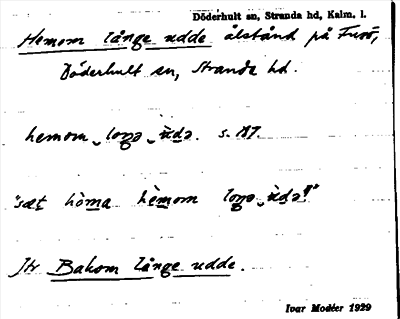 Döderhult sn, Stranda hd, Kalm. l.
Hemom långe udde ålstånd på Furö,
Döderhult sn, Stranda hd.
hemom ‿ loŋə ‿ ùdə. s. 187.
"sæt hòma hèmom loŋə ‿ ùdə!"
Jfr Bakom långe udde.
Ivar Modéer 1929